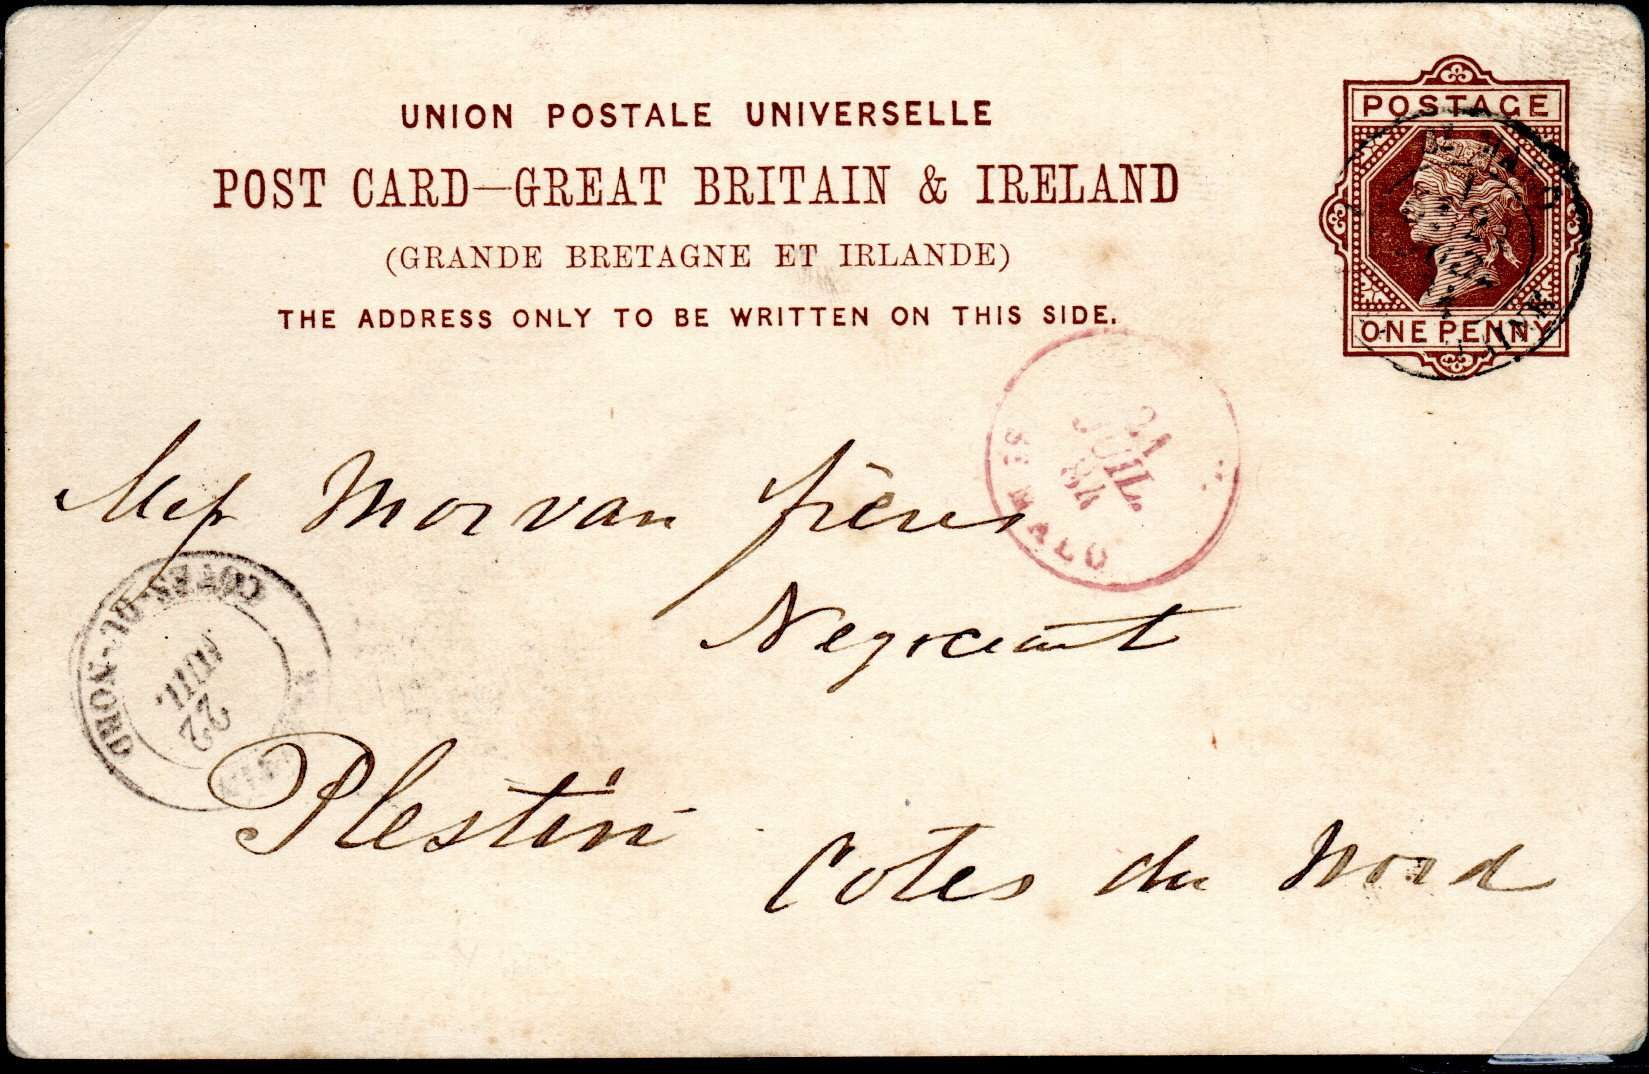 UNION POSTALE UNIVERSELLE
POST CARD—GREAT BRITAIN & IRELAND
(GRANDE BRETAGNE ET IRLANDE)
THE ADDRESS ONLY TO BE WRITTEN ON THIS SIDE.
POSTAGE
ONE PENNY
Morvan frères
Negociant
Plestin
Cotes du Nord
ST MALO
21
JUIL.
84
COTES-DU-NORD
22
JUIL